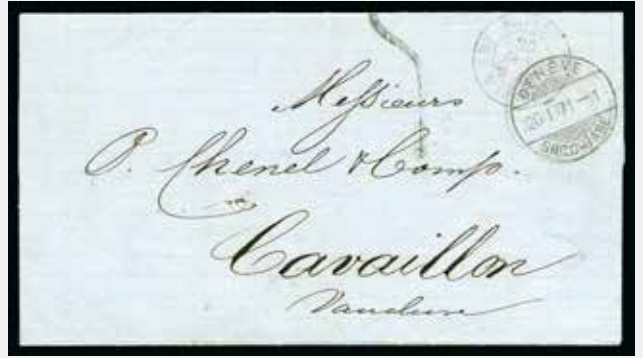 GENÈVE
20.I.91-3
SUCC. GARE
Messieurs
P. Chenel & Comp.
Cavaillon
Vaucluse